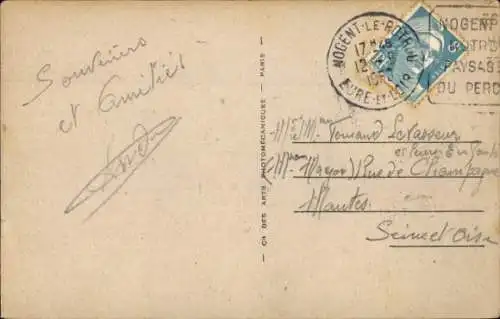 Souvenirs
et Amitiés
Cie DES ARTS PHOTOMÉCANIQUES — PARIS
NOGENT-LE-ROTROU
17 H 45
EURE-ET-LOIR
NOGENT
ROTROU
PAYSAG
DU PERC
Mr et Mme Levasseur
et leurs Enfants
Rue de Champagne
Mantes
Seine et Oise